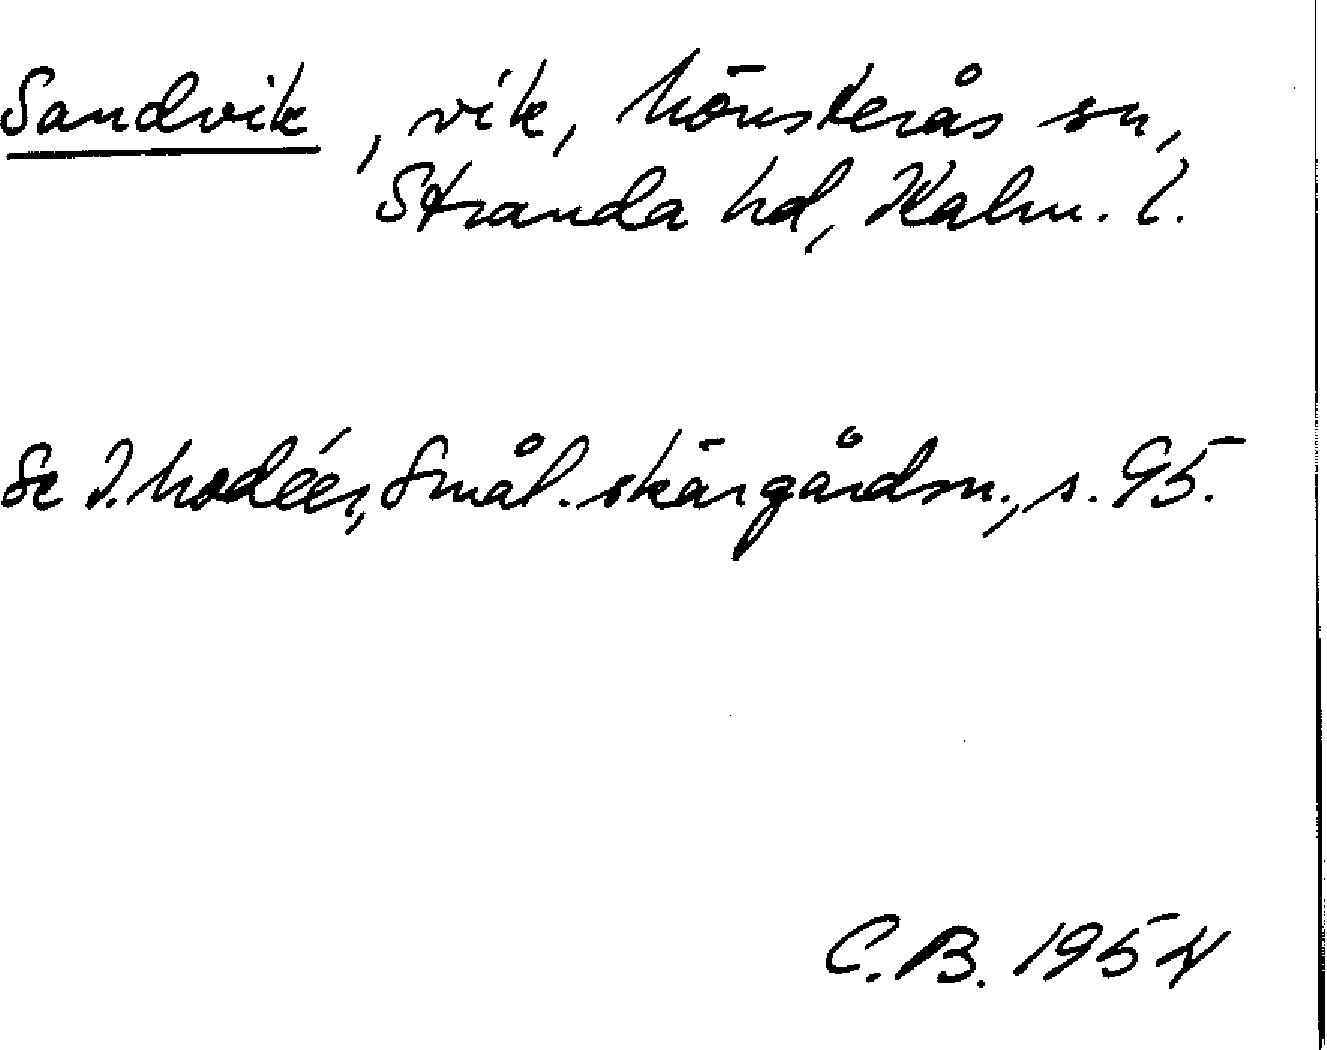 Sandvik, vik, Mönsterås sn,
Stranda hd, Kalm. l.
Se I. Modéer, Smål. skärgårdsn., s. 95.
C.B. 1954